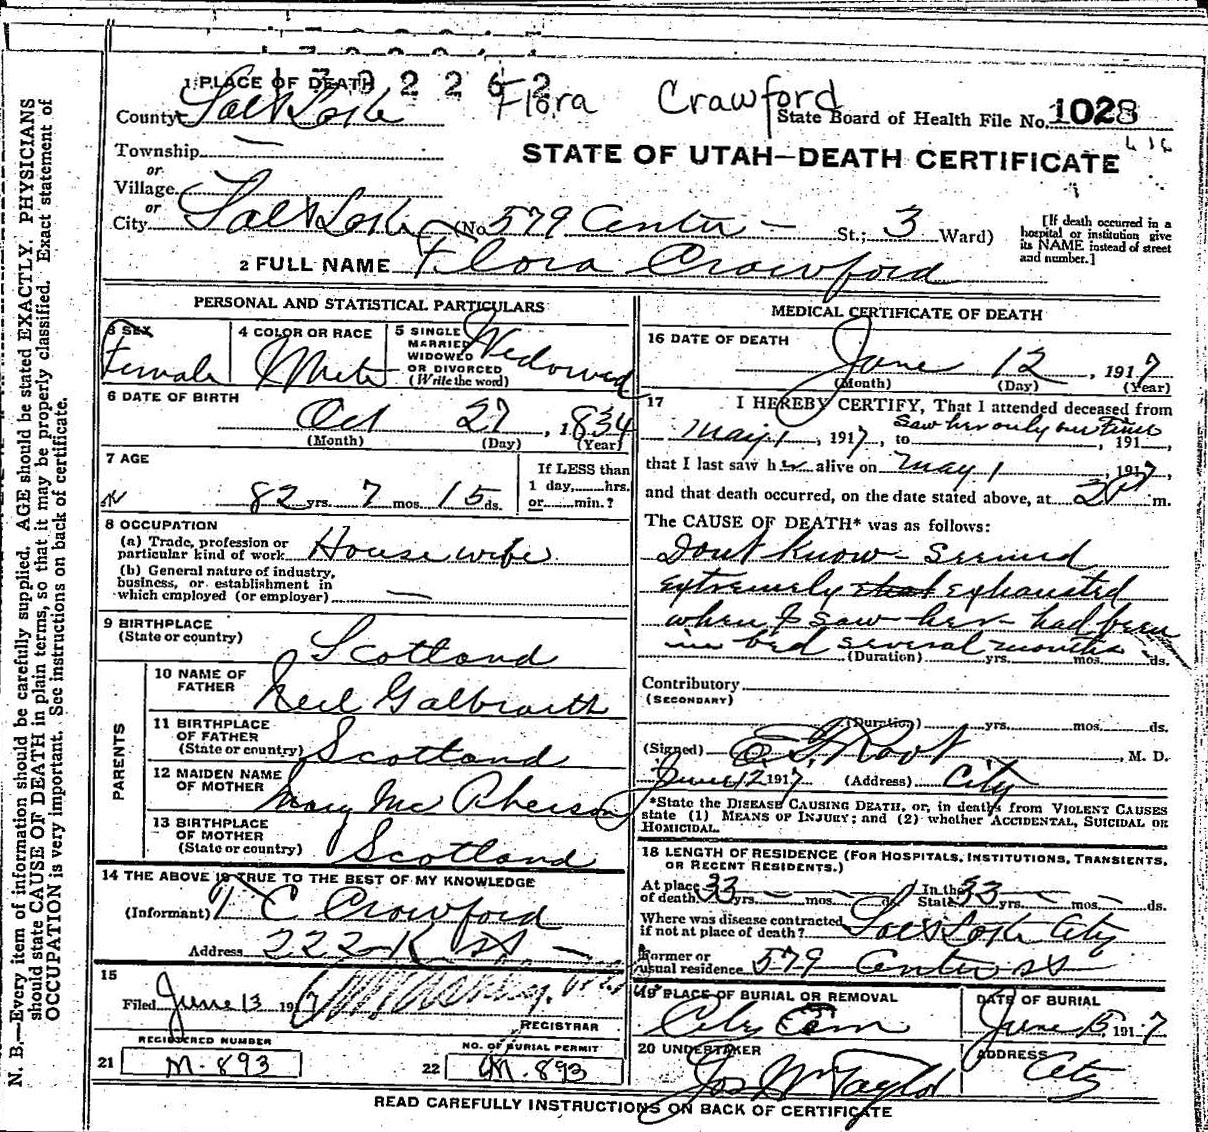 1 PLACE OF DEATH
1 7 0 2 2 6 2
Flora Crawford
County Salt Lake
State Board of Health File No. 1028
Township —
STATE OF UTAH—DEATH CERTIFICATE
or
Village
or
City Salt Lake (No. 579 Center — St.; 3 Ward)
[If death occurred in a hospital or institution give its NAME instead of street and number.]
2 FULL NAME Flora Crawford
PERSONAL AND STATISTICAL PARTICULARS
3 SEX Female
4 COLOR OR RACE White
5 SINGLE MARRIED WIDOWED OR DIVORCED (Write the word) Widowed
6 DATE OF BIRTH
Oct 27, 1834
(Month) (Day) (Year)
7 AGE
82 yrs. 7 mos. 15 ds.
If LESS than 1 day, hrs. or min.?
8 OCCUPATION
(a) Trade, profession or particular kind of work House wife
(b) General nature of industry, business, or establishment in which employed (or employer) —
9 BIRTHPLACE
(State or country) Scotland
PARENTS
10 NAME OF FATHER Neil Galbraith
11 BIRTHPLACE OF FATHER (State or country) Scotland
12 MAIDEN NAME OF MOTHER Mary McPherson
13 BIRTHPLACE OF MOTHER (State or country) Scotland
14 THE ABOVE IS TRUE TO THE BEST OF MY KNOWLEDGE
(Informant) T C Crawford
Address 222 K St —
15
Filed June 13 1917
REGISTRAR
REGISTERED NUMBER
21 M. 893
NO. OF BURIAL PERMIT
22 M. 893
MEDICAL CERTIFICATE OF DEATH
16 DATE OF DEATH
June 12, 1917
(Month) (Day) (Year)
17 I HEREBY CERTIFY, That I attended deceased from
May 1, 1917, to Saw her only one time, 191
that I last saw her alive on May 1, 1917,
and that death occurred, on the date stated above, at 2 P m.
The CAUSE OF DEATH* was as follows:
Dont know — Seemed
extremely that exhausted
when I saw her — had been
in bed several months
(Duration) yrs. mos. ds.
Contributory
(SECONDARY)
(Duration) yrs. mos. ds.
(Signed) , M. D.
June 12 1917 (Address) City
*State the DISEASE CAUSING DEATH, or, in deaths from VIOLENT CAUSES
state (1) MEANS OF INJURY; and (2) whether ACCIDENTAL, SUICIDAL OR
HOMICIDAL.
18 LENGTH OF RESIDENCE (FOR HOSPITALS, INSTITUTIONS, TRANSIENTS, OR RECENT RESIDENTS.)
At place of death 33 yrs. — mos. — ds. In the State 33 yrs. — mos. — ds.
Where was disease contracted if not at place of death? Salt Lake City
Former or usual residence 579 Center St
19 PLACE OF BURIAL OR REMOVAL
City Cem
DATE OF BURIAL
June 15 1917
20 UNDERTAKER
Jos Wm Taylor
ADDRESS
City
READ CAREFULLY INSTRUCTIONS ON BACK OF CERTIFICATE
N. B.—Every item of information should be carefully supplied. AGE should be stated EXACTLY. PHYSICIANS
should state CAUSE OF DEATH in plain terms, so that it may be properly classified. Exact statement of
OCCUPATION is very important. See instructions on back of certificate.